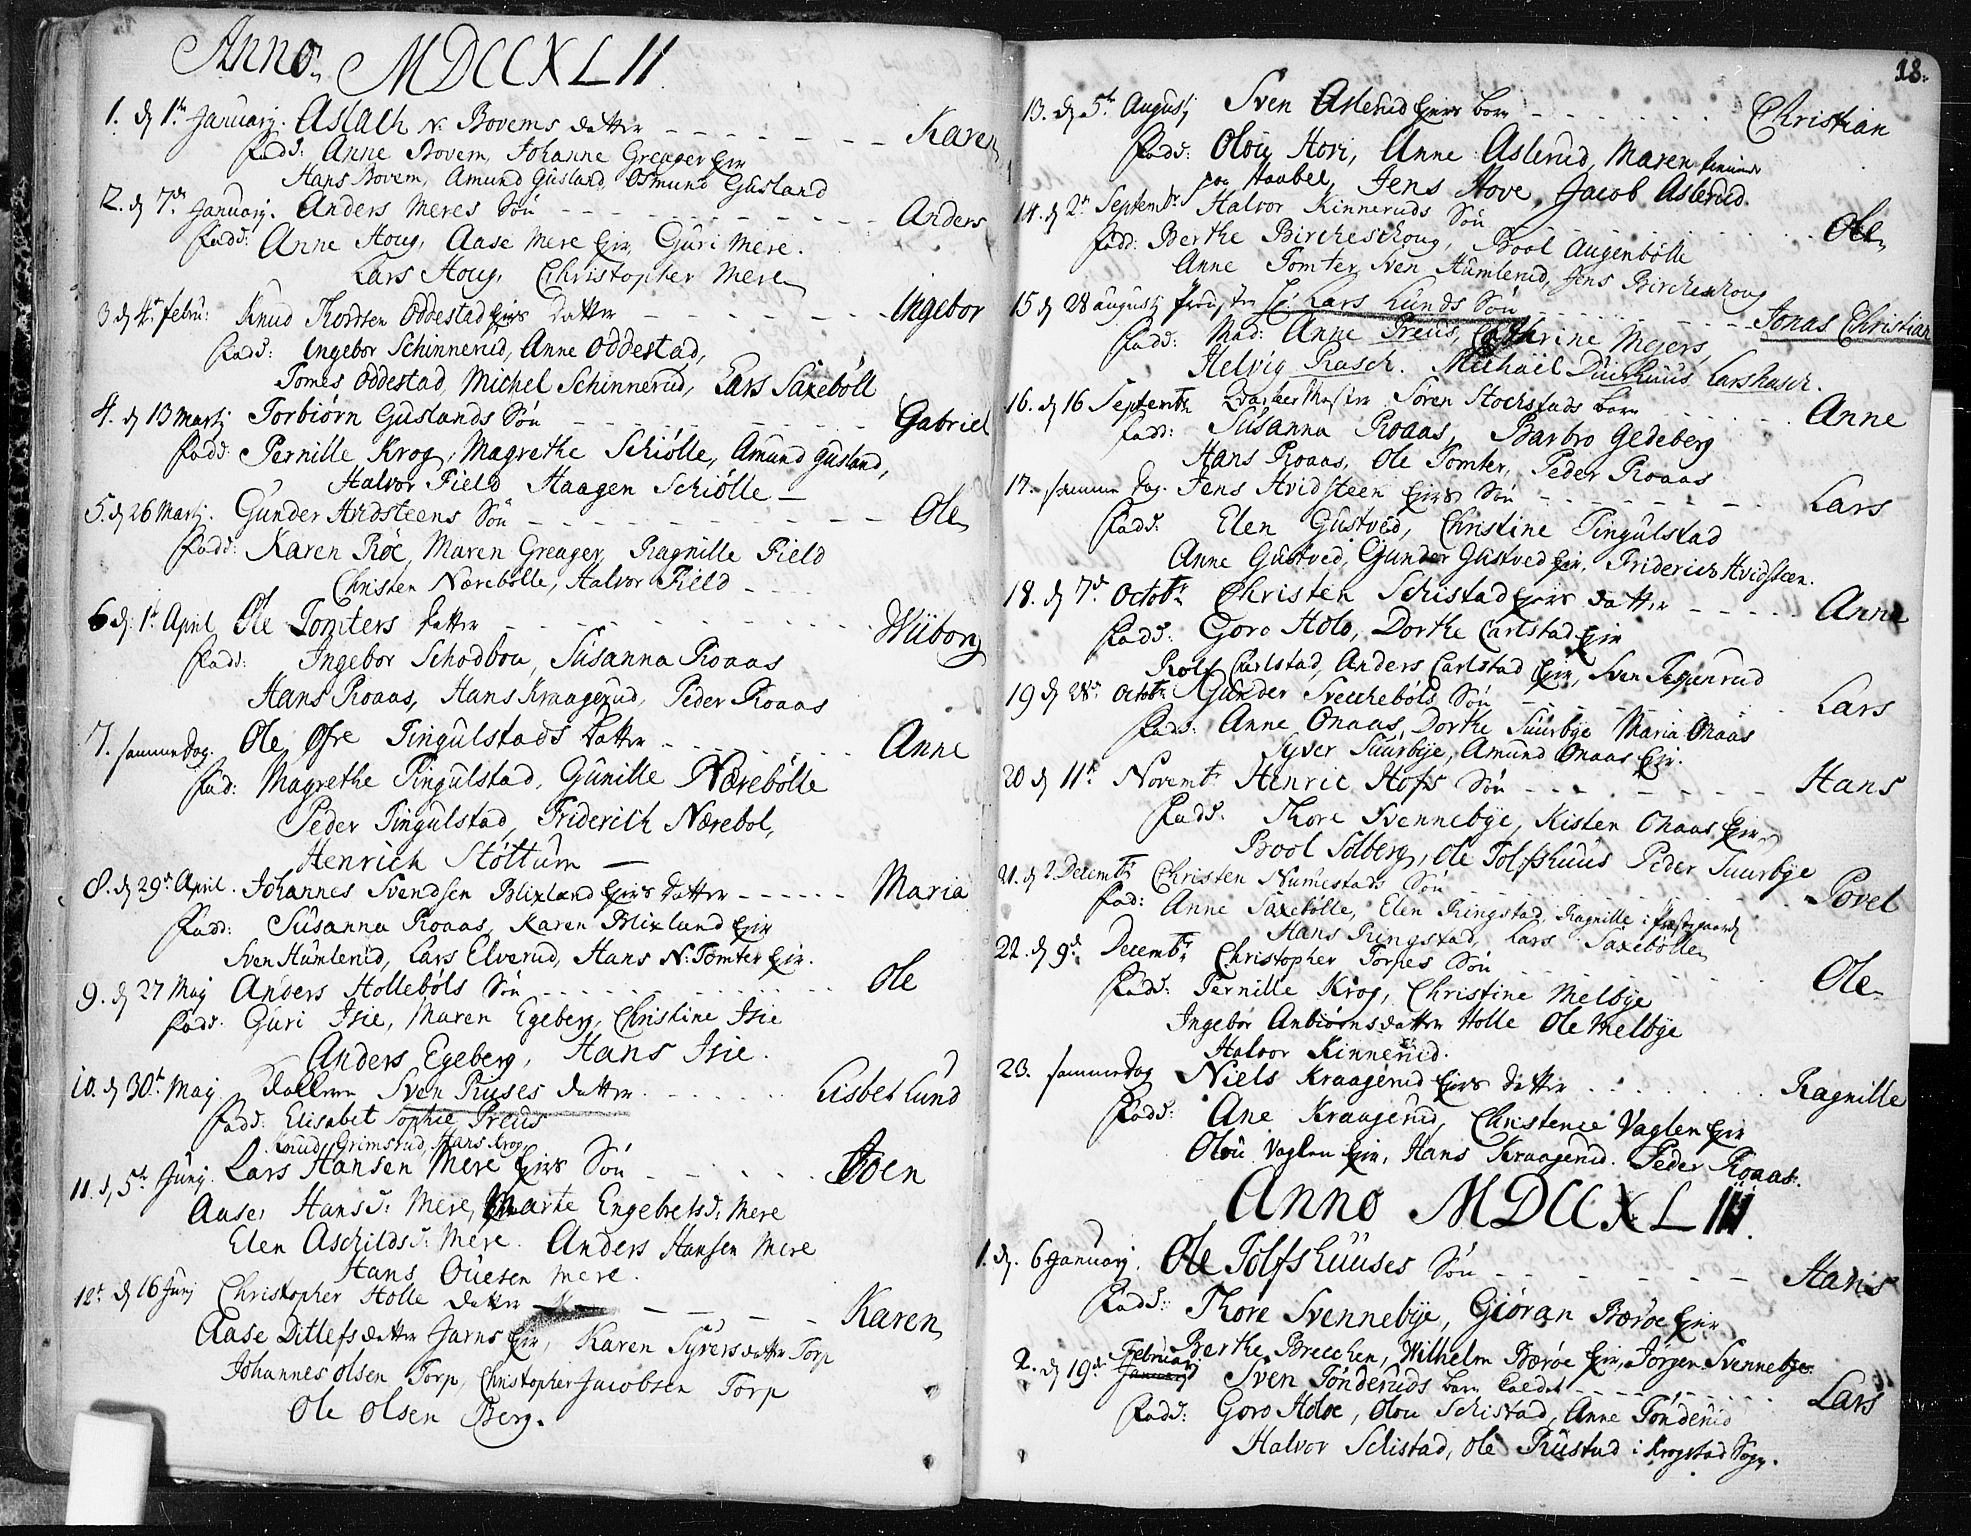 Anno MDCCXLII
1. d 1te Januarij. Aslach N. Bovems datter Karen
Fadd: Anne Bovem, Johanne Greager Eier
Hans Bovem, Amund Gusland, Osmund Gusland
2. d 7de Januarij. Anders Meres Søn Anders
Fadd: Anne Houg, Aase Mere Eier, Guri Mere.
Lars Houg, Christopher Mere
3 d 4de Febru: Knud Thordsen Oddestad Eiers Datter Ingebor
Fadd: Ingebor Schinnerud, Anne Oddestad,
Tomes Oddestad, Michel Schinnerud, Lars Saxebøll
4. d 13 Martij Torbiørn Guslands Søn Gabriel
Fadd Pernille Krog, Magrethe Schiølle, Amund Gusland,
Halvor Field Haagen Schiølle
5. d 26 Martij. Gunder Hvidsteens Søn Ole
Fadd: Karen Røe, Maren Greager, Ragnille Field
Christen Nærebølle, Halvor Field
6 d. 1te April Ole Tomters datter Wiborg
Fadd: Ingebor Schodbou, Susanna Roaas
Hans Roaas, Hans Kraagerud, Peder Roaas
7. samme Dag. Ole Øfre Tingulstads Datter Anne
Fad: Magrethe Tingulstad, Gunille Nærebølle
Peder Tingulstad, Friderich Nærebol,
Henrich Støttum
8. d 29de April. Johannes Svendsen Blixland Eiers Datter Maria
Fadd: Susanna Roaas, Karen Blixlund Eier
Sven Humlerud, Lars Elverud, Hans N: Tomter Eier.
9. d 27 Maij Anders Hollebøls Søn Ole
Fadd: Guri Isie, Maren Egeberg, Christine Isie
Anders Egeberg, Hans Isie.
10. d 30te Maij Sven Ruses datter Lisbet Lund
Fad: Elisabet Sophie Preus
Knud Grimsrud, Hans Krog
11. d 5te Junij. Lars Hansen Mere Eiers Søn Joen
Aase Hansd: Mere, Marte Engebretsd: Mere
Elen Aschildsd: Mere. Anders Hansen Mere
Hans Ouesen Mere.
12te d 16 Junij Christopher Holle datter Karen
Aase Ditlefsdatter Jarns Eier, Karen Syversdatter Torp
Johannes Olsen Torp, Christopher Jacobsen Torp
Ole Olsen Berg.
18.
13. d. 5te Augustij Sven Asterud Eiers barn Christian
Fadd: Olou Hori, Anne Asterud, Maren
paa Haabel, Jens Hove, Jacob Asterud.
14. d 2den Septembr Halvor Kinneruds Søn Ole
Fadd: Berthe Bircheschoug, Bool Augenbølle
Anne Tomter, Sven Humlerud, Jens Bircheschoug
15 d 28 augustij Lars Lunds Søn Jonas Christian
Fadd: Mad: Anne Preus, Cathrine Mejers,
Helvig Rasch. Michael Duurhuus, Lars Rasch.
16. d 16 Septembr Søren Stochstads barn Anne
Fadd: Susanna Roaas, Barbro Gedeberg
Hans Roaas, Ole Tomter, Peder Roaas
17. samme Dag. Jens Hvidsteen Eiers Søn Lars
Fadd: Elen Gustved, Christine Tingulstad
Anne Gustved, Gunder Gustved Eier, Friderich Hvidsteen.
18. d 7de Octobr Christen Schistad Eiers datter Anne
Fadd: Goro Holo, Dorthe Carlstad Eier
Rolf Carlstad, Anders Carlstad Eier, Sven Tegenrud
19 d 28de Octobr Gunder Svecchebøls Søn Lars
Fadd: Anne Onaas, Dorthe Tuurbye Maria Onaas
Syver Tuurbye, Amund Onaas Eier.
20 d 11te Novembr Henric Hofs Søn Hans
Fadd: Thore Svennebye, Kisten Onaas Eier
Bool Solberg, Ole Tolfshuus Peder Tuurbye
21. d 2 Decembr Christen Numestads Søn Povel
Fad: Anne Saxebølle, Elen Ringstad, Ragnille i Præstegaard
Hans Ringstad, Lars Saxebølle
22. d 9de Decembr Christopher Torpes Søn Ole
Fadd: Pernille Krog, Christine Melbye
Ingebor Anbiørnsdatter Holle Ole Melbye
Halvor Kinnerud.
23. samme Dag Niels Kraagerud Eiers datter Ragnille
Fadd: Ane Kraagerud, Christence Vaglen Eier
Olou Vaglen Eier, Hans Kraagerud. Peder Roaas.
Anno MDCCXLIII.
1. d. 6 Januarij. Ole Tolfshuuses Søn Hans
Fadd: Thore Svennebye, Giøran Bærøe Eier
Berthe Brecchen, Wilhelm Bærøe Eier, Jørgen Svennebye.
2. d 19de Februarij Januarij Sven Tønderuds barn Caldet Lars
Fadd: Goro Holoe, Olou Schistad, Anne Tønderud
Halvor Schistad, Ole Rustad i Krogstad Sogn.